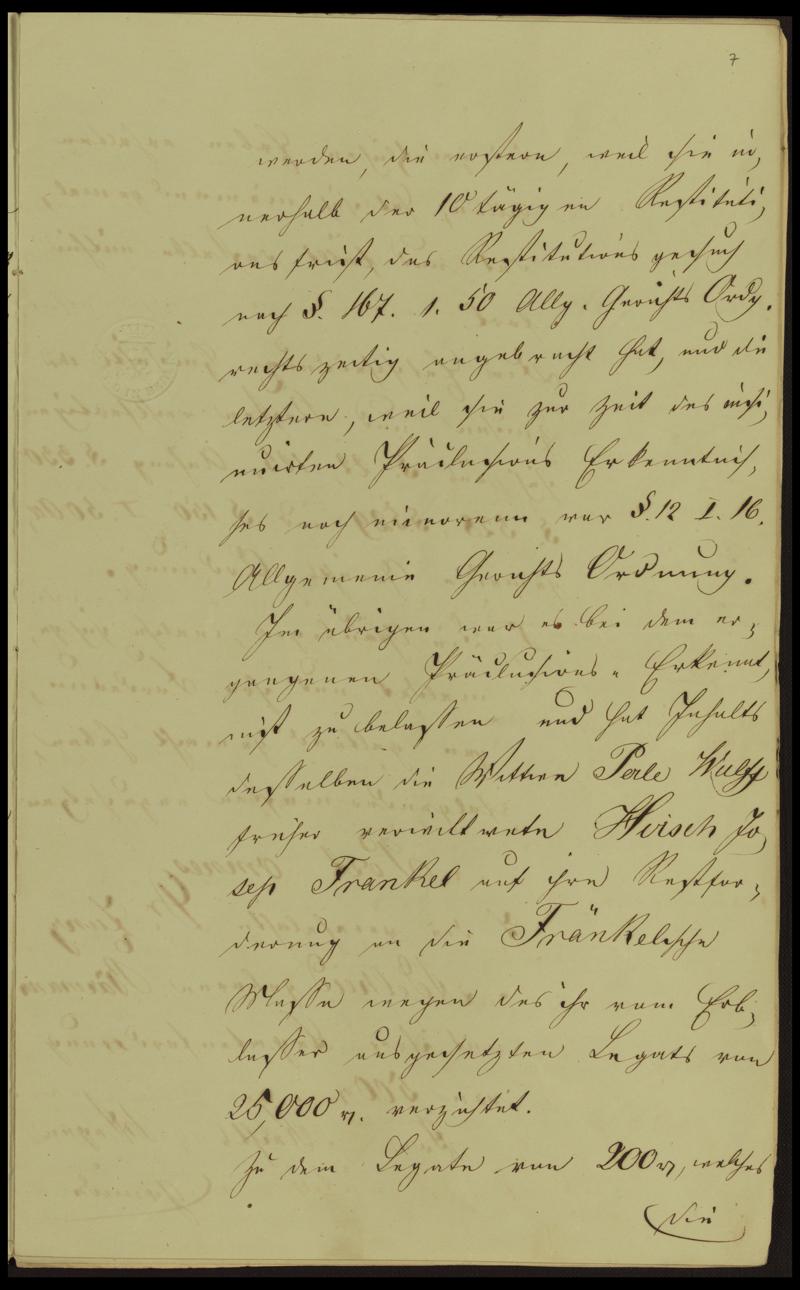 7
werden, die erstern, weil sie in,
nerhalb der 10 tägigen Restituti,
ons frist, das Restitutions gesuch
nach §. 167. 1. 50 Allg. Gerichts Ordg.
rechtszeitig angebracht hat, und die
letztern, weil sie zur Zeit des insi,
nuirten Präclusions Erkenntnis,
ses noch minorenn war §. 12 I. 16.
Allgemeine Gerichts Ordnung.
Im übrigen war es bei dem er,
gangenen Präclusions-Erkennt,
niß zu belassen und hat Inhalts
desselben die Wittwe Perle Wulff
früher verwittwete Hirsch Jo,
seph Frankel auf ihre Restfor,
derung an die Fränkelsche
Masse wegen des ihr vom Erb,
lasser ausgesetzten Legats von
25,000 r. verzichtet.
Zu dem Legate von 200 r, welches
die